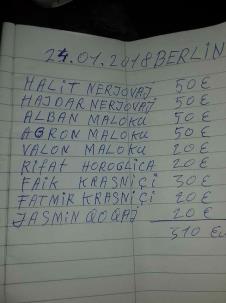 24.01.2018 BERLIN
HALIT NERJOVAJ 50 €
HAJDAR NERJOVAJ 50 €
ALBAN MALOKU 50 €
AGRON MALOKU 50 €
VALON MALOKU 20 €
RIFAT HOROGLICA 20 €
FAIK KRASNIÇI 30 €
FATMIR KRASNIÇI 20 €
JASMIN QOQAJ 20 €
310 Eu